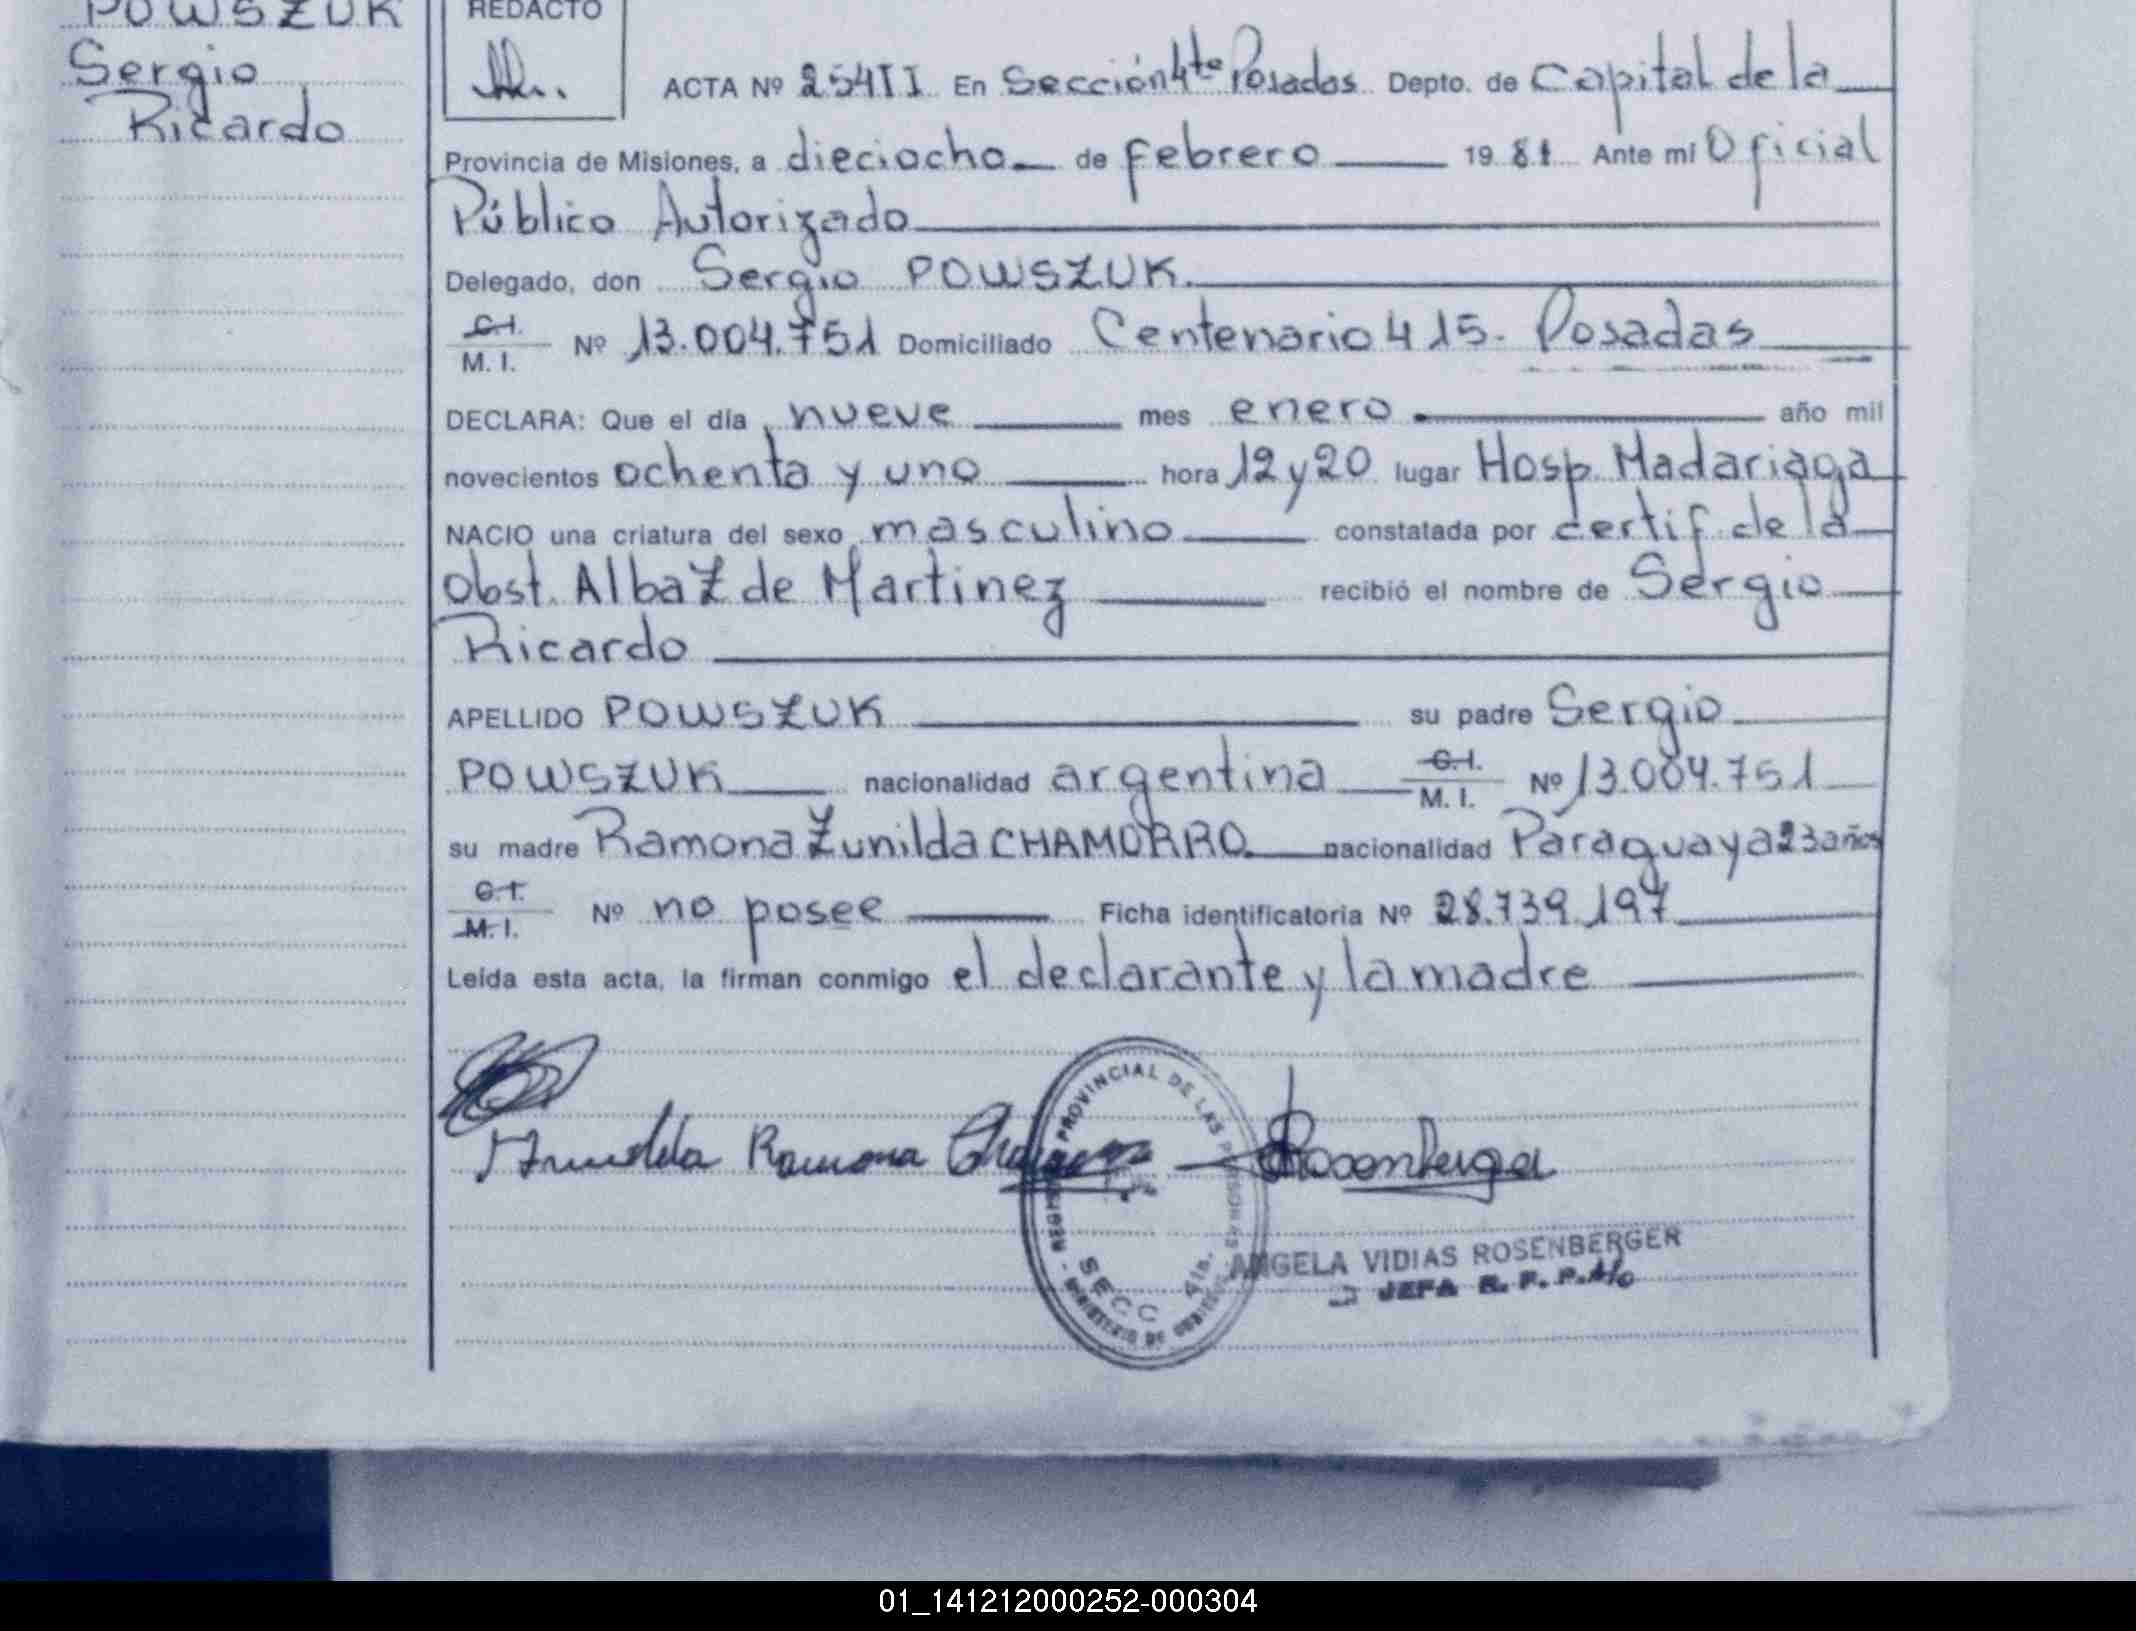 POWSZUK
Sergio
Ricardo
REDACTO
ACTA Nº 254TI En Sección 4ta Posadas Depto. de Capital de la
Provincia de Misiones, a dieciocho de febrero 1981 Ante mí Oficial
Público Autorizado
Delegado, don Sergio POWSZUK.
C.I.
M. I. Nº 13.004.751 Domiciliado Centenario 415. Posadas
DECLARA: Que el día nueve mes enero año mil
novecientos ochenta y uno hora 12 y 20 lugar Hosp. Madariaga
NACIO una criatura del sexo masculino constatada por certif. de la
Obst. Alba Z de Martinez recibió el nombre de Sergio
Ricardo
APELLIDO POWSZUK su padre Sergio
POWSZUK nacionalidad argentina C.I. M. I. Nº 13.004.751
su madre Ramona Zunilda CHAMORRO nacionalidad Paraguaya 23 años
C.I.
M.I. Nº no posee Ficha identificatoria Nº 28.739.197
Leída esta acta, la firman conmigo el declarante y la madre
Ramona
Rosenberger
REGISTRO PROVINCIAL DE LAS PERSONAS
SECC 4ta.
MINISTERIO DE GOBIERNO
ANGELA VIDIAS ROSENBERGER
JEFA R. P. P. A/c
01_141212000252-000304